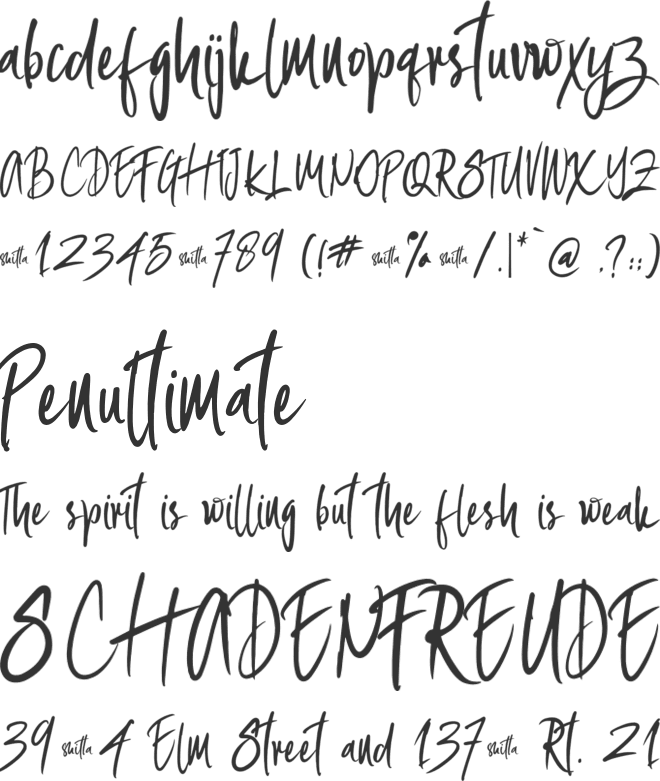 abcdefghijklmnopqrstuvwxyz
ABCDEFGHIJKLMNOPQRSTUVWXYZ
smitta 12345 smitta 789 (!# smitta % smitta /.|*` @ .?::)
Penultimate
The spirit is willing but the flesh is weak
SCHADENFREUDE
39 smitta 4 Elm Street and 137 smitta Rt. 21